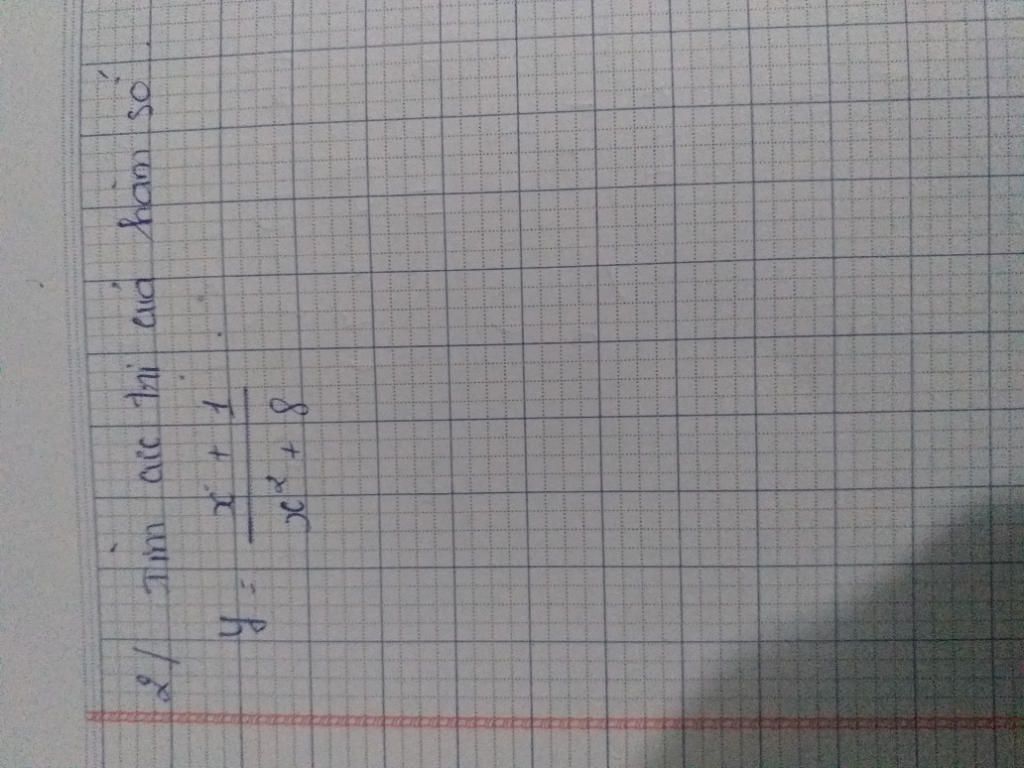 2/ Tìm cực trị của hàm số
y = x + 1
x² + 8